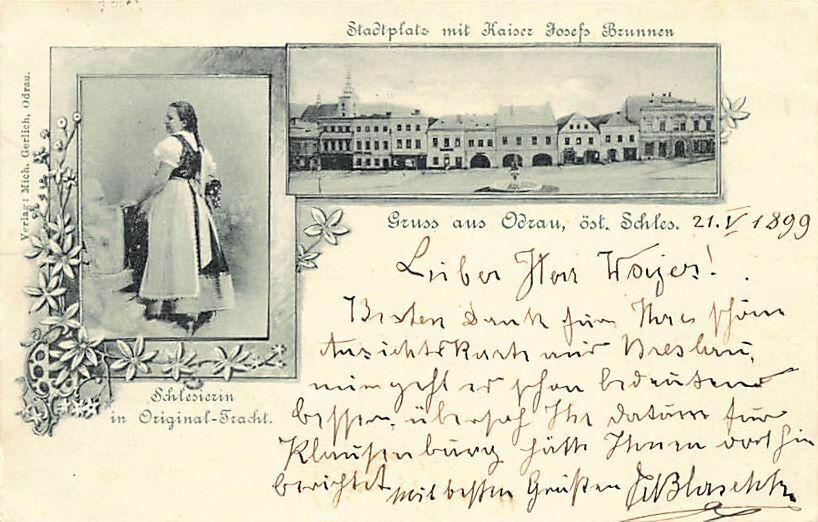 Stadtplatz mit Kaiser Josefs Brunnen
Verlag: Mich. Gerlich, Odrau.
Gruss aus Odrau, öst. Schles. 21. V 1899
Lieber Herr
Besten Dank für Ihre schöne
Ansichtskarte aus Breslau,
mir geht es schon bedeutend
besser, übersah Ihr datum für
Klausenburg hätte Ihnen dorthin
berichtet mit besten Grüßen
Schlesierin
in Original-Tracht.